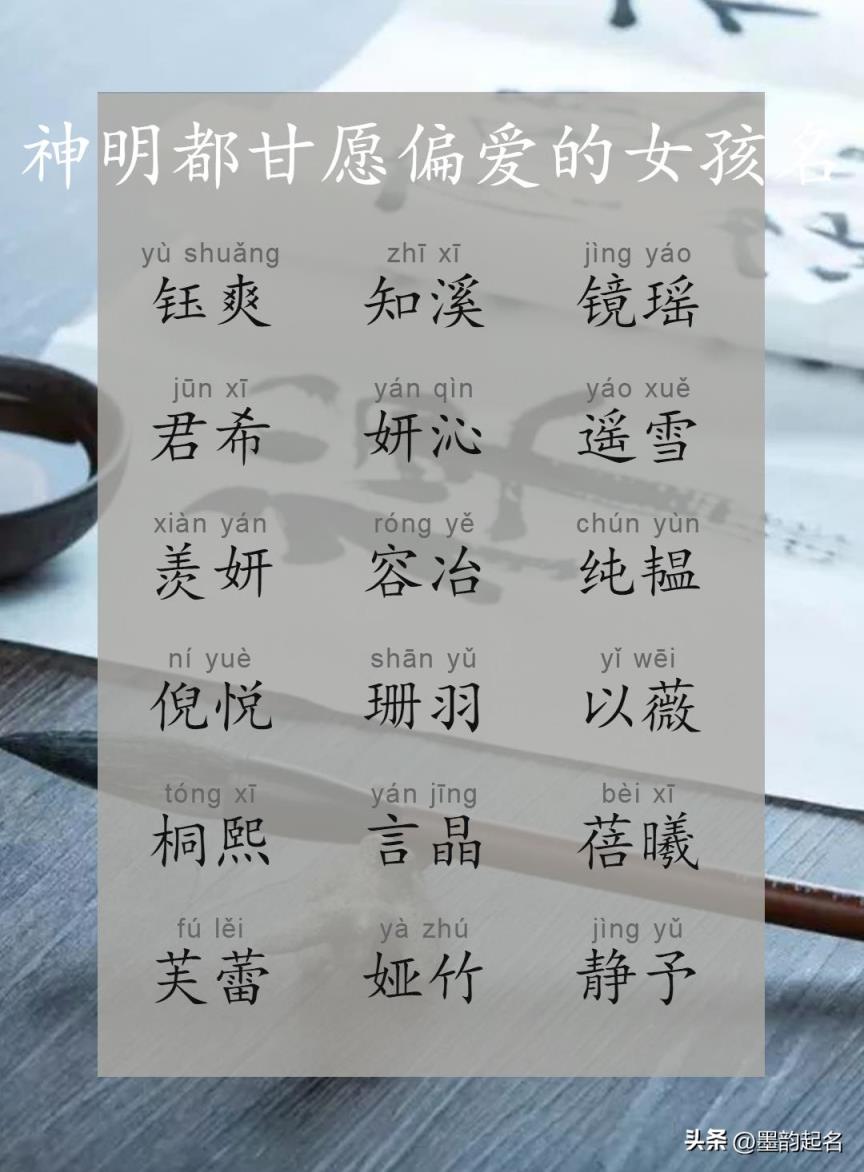 神明都甘愿偏爱的女孩名
yù shuǎng zhī xī jìng yáo
钰爽 知溪 镜瑶
jūn xī yán qìn yáo xuě
君希 妍沁 遥雪
xiàn yán róng yě chún yùn
羡妍 容冶 纯韫
ní yuè shān yǔ yǐ wēi
倪悦 珊羽 以薇
tóng xī yán jīng bèi xī
桐熙 言晶 蓓曦
fú lěi yà zhú jìng yǔ
芙蕾 娅竹 静予
头条 @墨韵起名